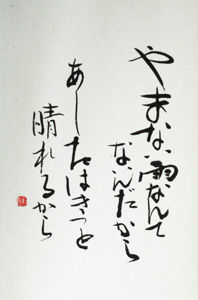 やまない雨なんて
ないんだから
あしたはきっと
晴れるから